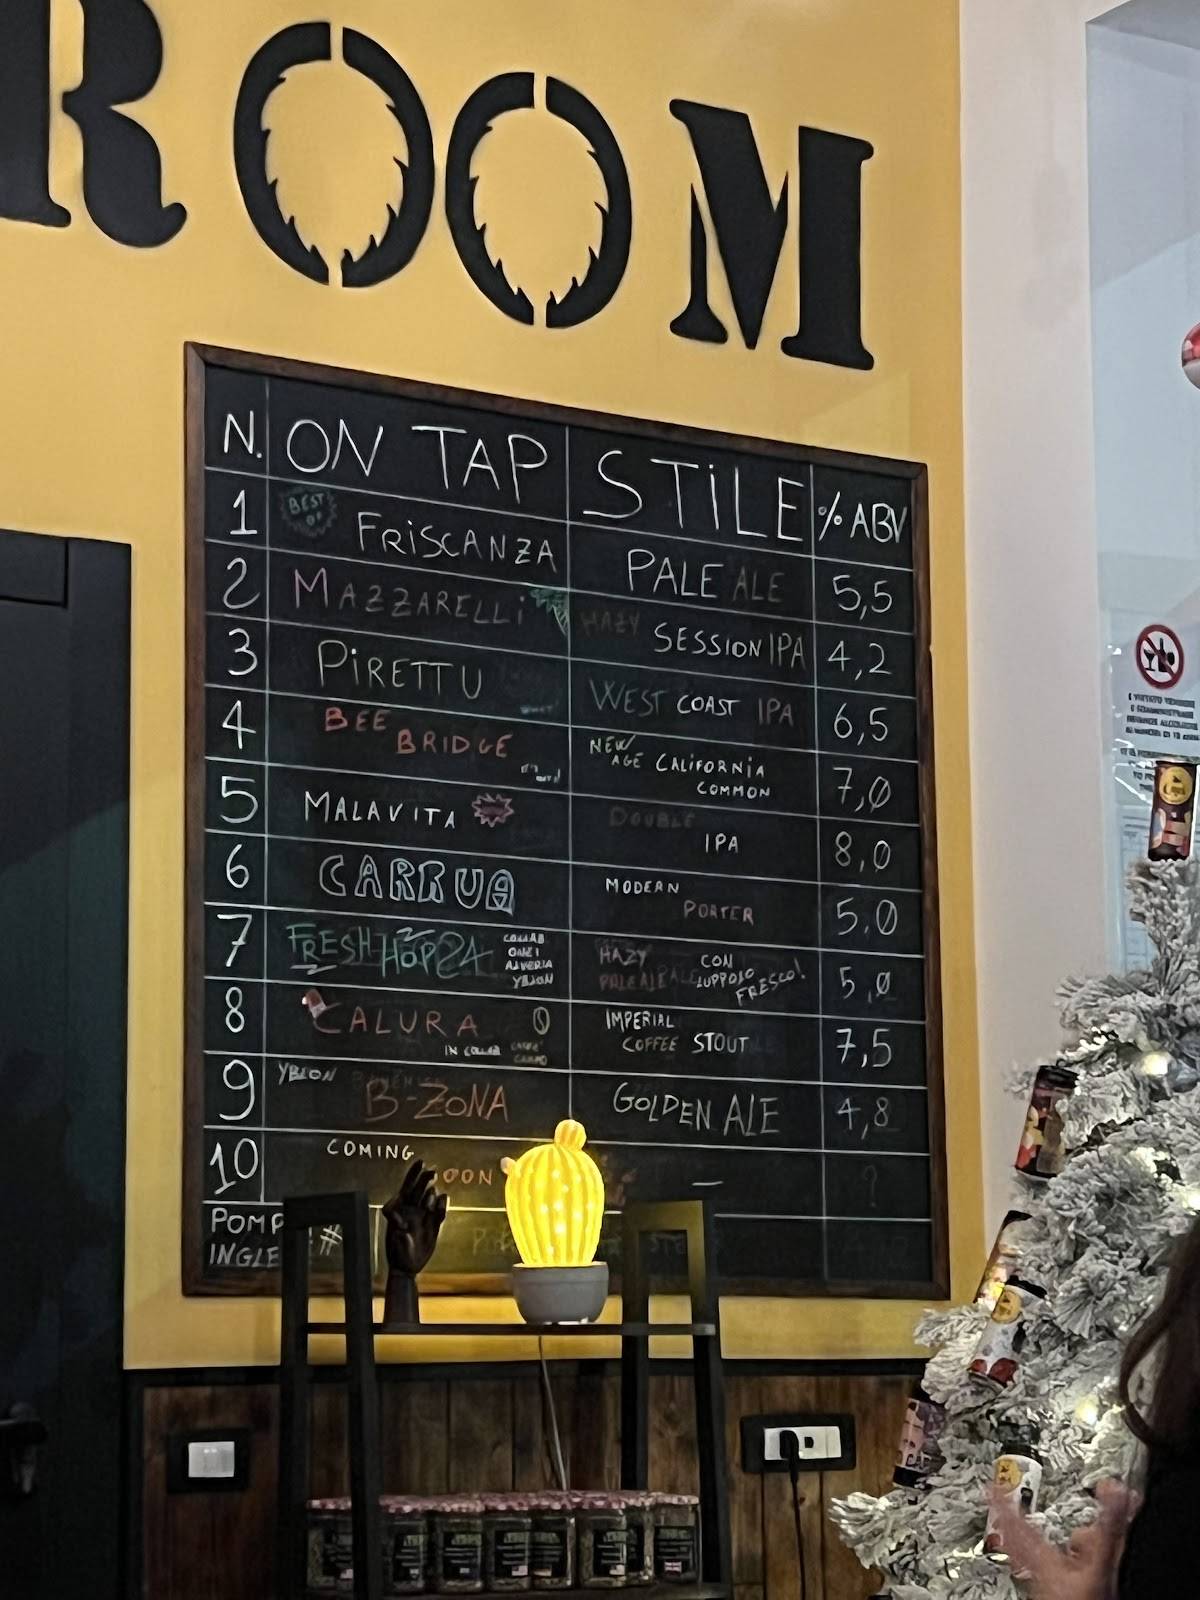 ROOM
N. ON TAP STiLE % ABV
1 BEST OF FRiSCANZA PALE ALE 5,5
2 MAZZARELLi HAZY SESSION IPA 4,2
3 PiRETTU WEST COAST IPA 6,5
4 BEE BRIDGE NEW AGE CALIFORNiA COMMON 7,0
5 MALAVITA DOUBLE IPA 8,0
6 CARRUA MODERN PORTER 5.0
7 FRESH HOP 24 COLLAB HAZY PALE ALE CON LUPPOLO FRESCO! 5,0
8 CALURA IN COLLAB IMPERIAL COFFEE STOUT 7,5
9 YBLON B-ZONA GOLDEN ALE 4,8
10 COMING OON — ?
POMP
INGLE #